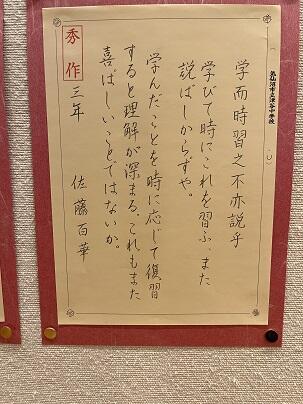 気仙沼市立津谷中学校
学而時習之不亦説乎
学びて時にこれを習ふ、また
説ばしからずや。
学んだことを時に応じて復習
すると理解が深まる、これもまた
喜ばしいことではないか。
三年 佐藤百華
秀作